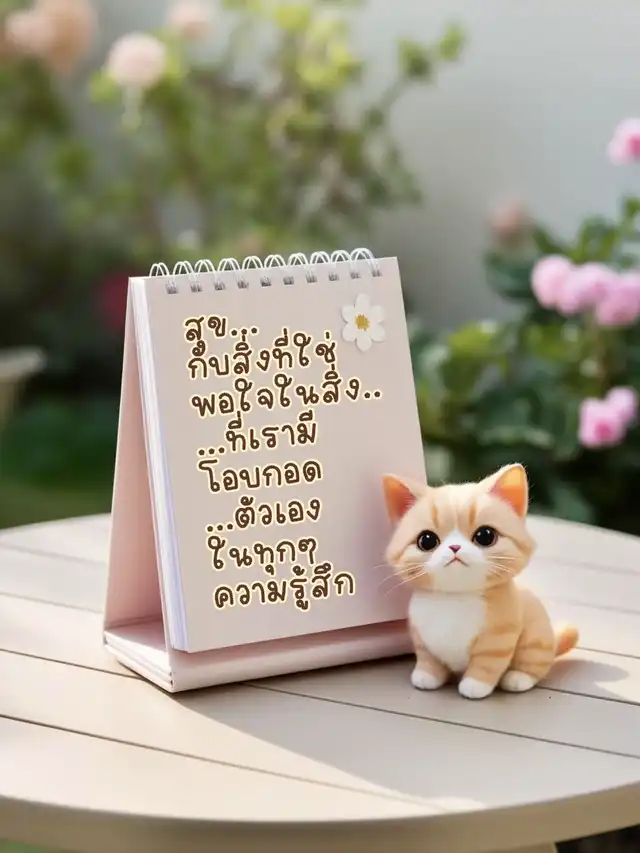 สุข...
กับสิ่งที่ใช่
พอใจในสิ่ง..
...ที่เรามี
โอบกอด
...ตัวเอง
ในทุกๆ
ความรู้สึก